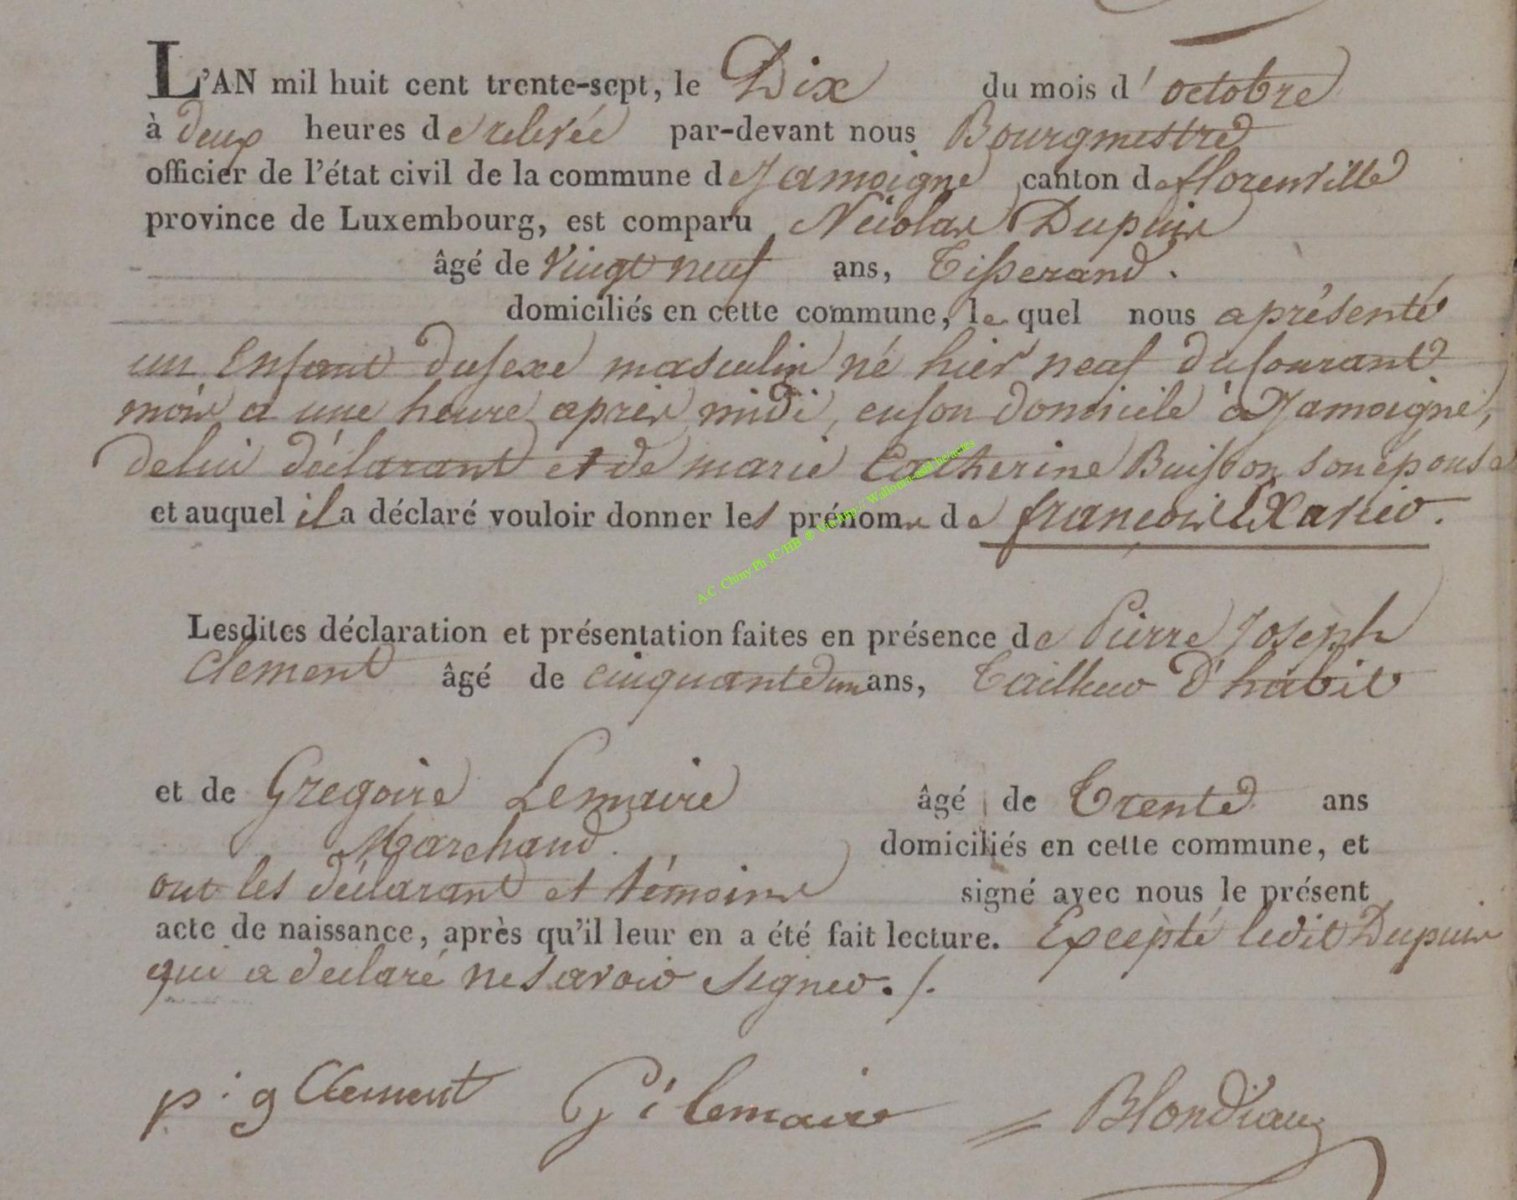 L'AN mil huit cent trente-sept, le Dix du mois d'octobre
à deux heures de relevée par-devant nous Bourgmestre
officier de l'état civil de la commune de Jamoigne canton de florenville
province de Luxembourg, est comparu Nicolas Dupuis
âgé de vingt neuf ans, Tisserand.
domiciliés en cette commune, le quel nous a présenté
un Enfant du sexe masculin né hier neuf du courant
mois a une heure après midi, en son domicile à Jamoigne,
de lui déclarant et de marie Catherine Buisson son épouse
et auquel il a déclaré vouloir donner les prénoms de françois Xavier.
A.C. Chiny Ph JC/HB
Lesdites déclaration et présentation faites en présence de Pierre Joseph
Clement âgé de cinquante un ans, Tailleur d'habit
et de Gregoire Lemaire âgé de Trente ans
Marchand. domiciliés en cette commune, et
ont les déclarant et témoins signé avec nous le présent
acte de naissance, après qu'il leur en a été fait lecture. Excepté ledit Dupuis
qui a declaré ne savoir signer./.
p. g Clement G. lemaire = Blondiau